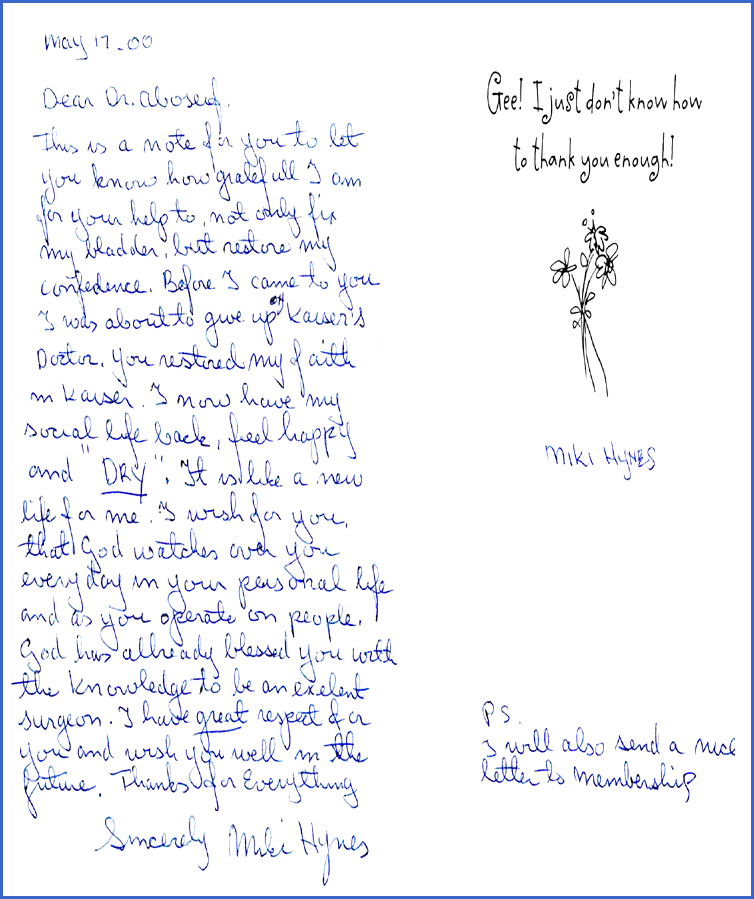 May 17-00
Dear Dr. Aboseif.
This is a note for you to let
you know how gratefull I am
for your help to, not only fix
my bladder, but restore my
confedence. Before I came to you
I was about to give up on Kaiser's
Doctor. You restored my faith
in Kaiser. I now have my
social life back, feel happy
and "DRY". It is like a new
life for me. I wish for you,
that God watches over you
everyday in your personal life
and as you operate on people.
God has allready blessed you with
the knowledge to be an exelent
surgeon. I have great respect for
you and wish you well in the
future. Thanks for Everything
Sincerely Miki Hynes
Gee! I just don't know how
to thank you enough!
MIKI HYNES
PS.
I will also send a nice
letter to Membership